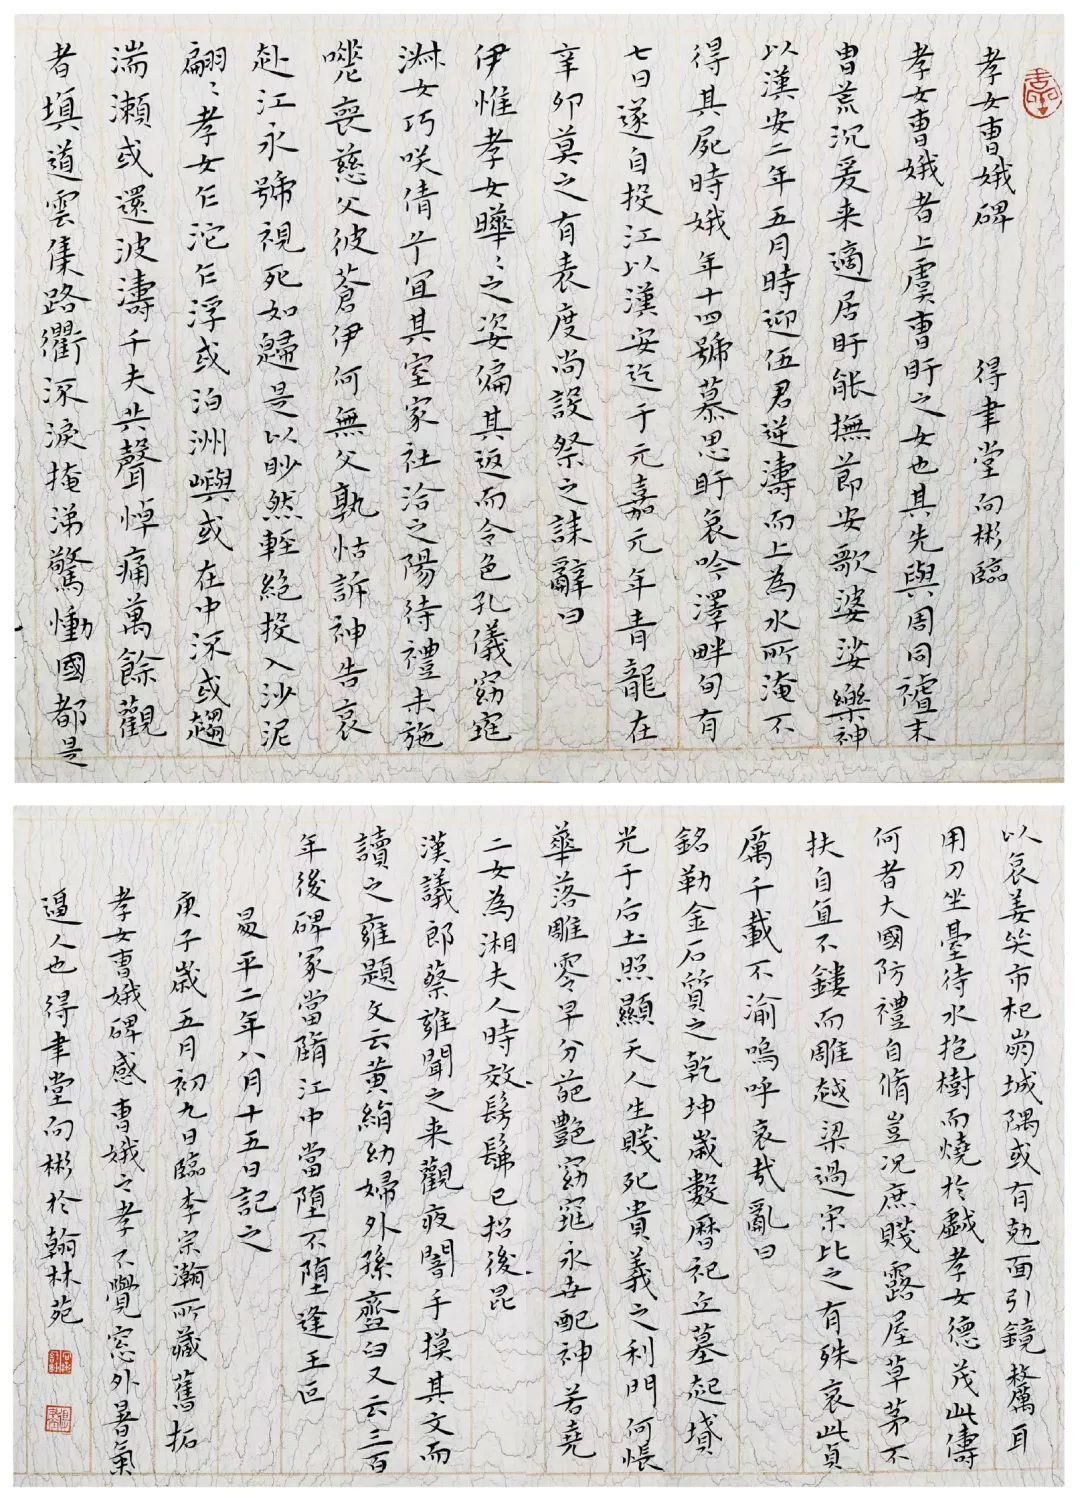 孝女曹娥碑 得聿堂向彬臨
孝女曹娥者上虞曹盱之女也其先與周同禮末
胄荒沉爰来適居盱能撫莭安歌婆娑樂神
以漢安二年五月時迎伍君逆濤而上為水所淹不
得其屍時娥年十四號慕思盱哀吟澤畔旬有
七日遂自投江以漢安迄于元嘉元年青龍在
辛卯莫之有表度尚設祭之誄辭曰
伊惟孝女曄〻之姿偏其返而令色孔儀窈窕
淑女巧咲倩兮宜其室家社洽之陽待禮未施
嗟喪慈父彼蒼伊何無父孰怙訴神告哀
赴江永號視死如歸是以眇然輕絕投入沙泥
翩〻孝女乍沱乍浮或泊洲嶼或在中深或趨
湍瀬或還波濤千夫共聲悼痛萬餘觀
者填道雲集路衢泳淚掩涕驚慟國都是
以哀姜哭市杞崩城隅或有勊面引鏡剺耳
用刀坐臺待水抱樹而燒於戲孝女德茂此儔
何者大國防禮自脩豈况庶賤露屋草茅不
扶自直不鏤而雕越梁過宋比之有殊哀此貞
厲千載不渝嗚呼哀哉亂曰
銘勒金石質之乾坤歲數曆祀立墓起墳
光于后土照顯天人生賤死貴義之利門何悵
華落雕零早分葩艷窈窕永世配神若堯
二女為湘夫人時效髣髴已招後昆
漢議郎蔡雍聞之来觀夜闇手摸其文而
讀之雍題文云黄絹幼婦外孫齏臼又云三百
年後碑冢當隋江中當墮不墮逢王叵
昜平二年八月十五日記之
庚子歲五月初九日臨李宗瀚所藏舊拓
孝女曹娥碑感曹娥之孝不覺窓外暑氣
逼人也得聿堂向彬於翰林苑